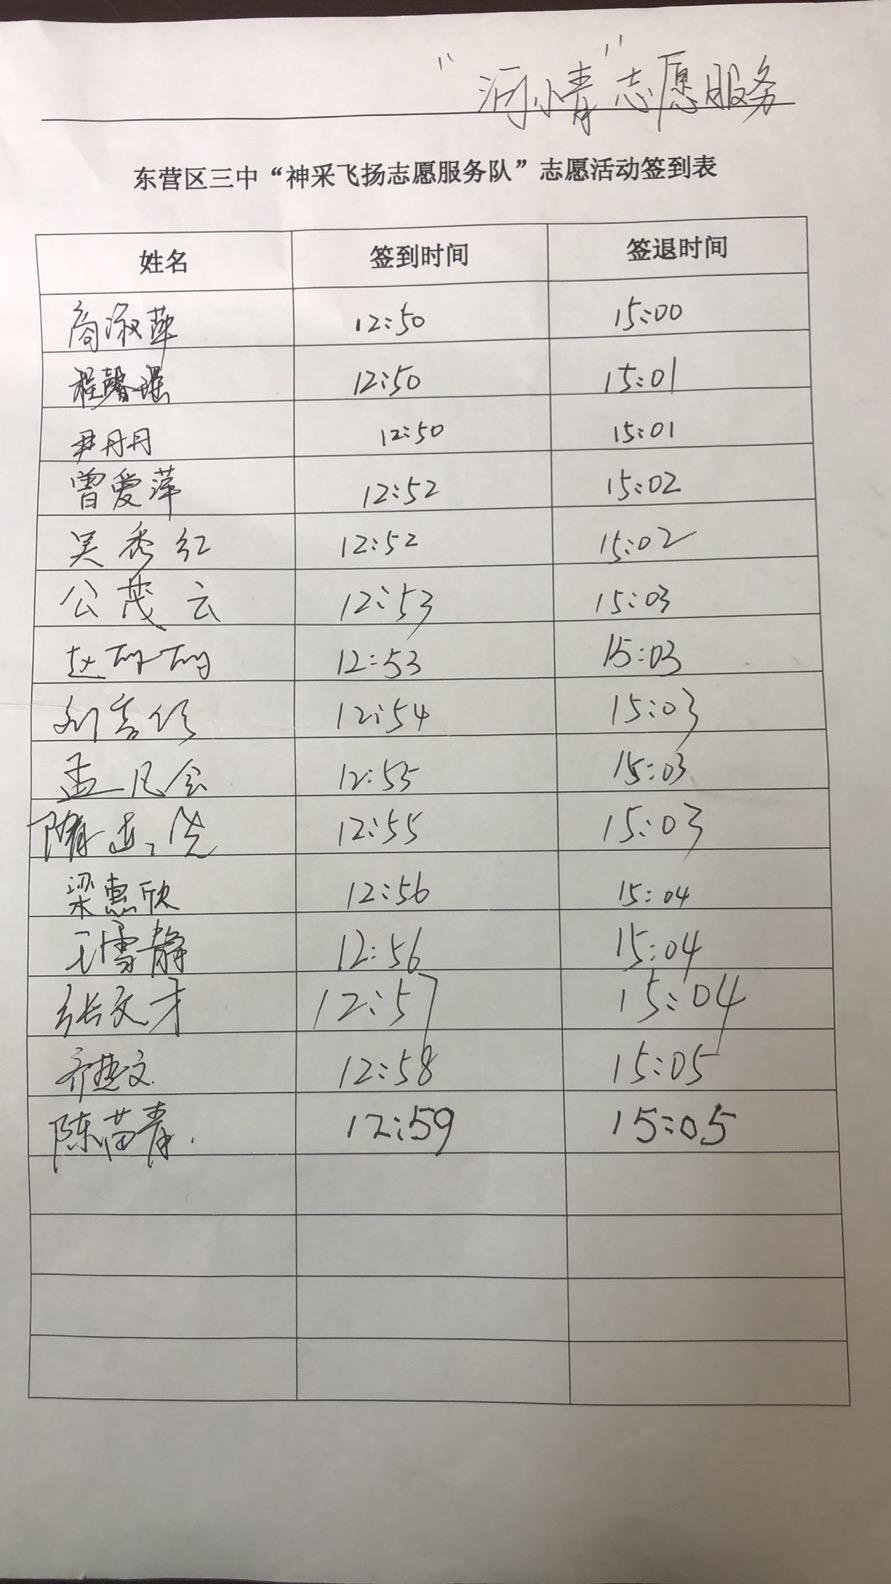 “河小青”志愿服务
东营区三中“神采飞扬志愿服务队”志愿活动签到表
姓名 签到时间 签退时间
商淑萍 12:50 15:00
程馨瑶 12:50 15:01
尹丹丹 12:50 15:01
曾爱萍 12:52 15:02
吴秀红 12:52 15:02
公茂云 12:53 15:03
赵丽丽 12:53 15:03
12:54 15:03
孟凡会 12:55 15:03
12:55 15:03
梁惠欣 12:56 15:04
王雪静 12:56 15:04
张文才 12:57 15:04
齐楚文 12:58 15:05
陈苗青. 12:59 15:05